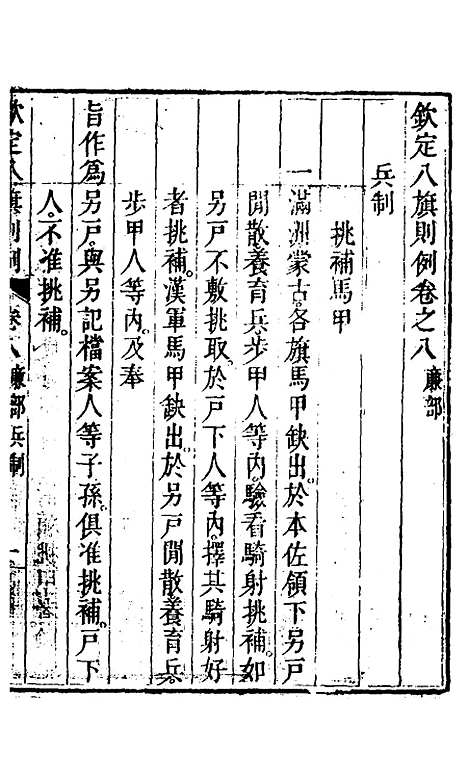 欽定八旗則例卷之八 廉部
兵制
挑補馬甲
一滿洲蒙古各旗馬甲缺出。於本佐領下另戶
閒散養育兵步甲人等內。驗看騎射挑補。如
另戶不敷挑取。於戶下人等內。擇其騎射好
者挑補。漢軍馬甲缺出。於另戶閒散養育兵。
步甲人等內。及奉
旨作爲另戶。與另記檔案人等子孫。俱准挑補。戶下
人。不准挑補。
欽定八旗則例 卷八 廉部兵制 一